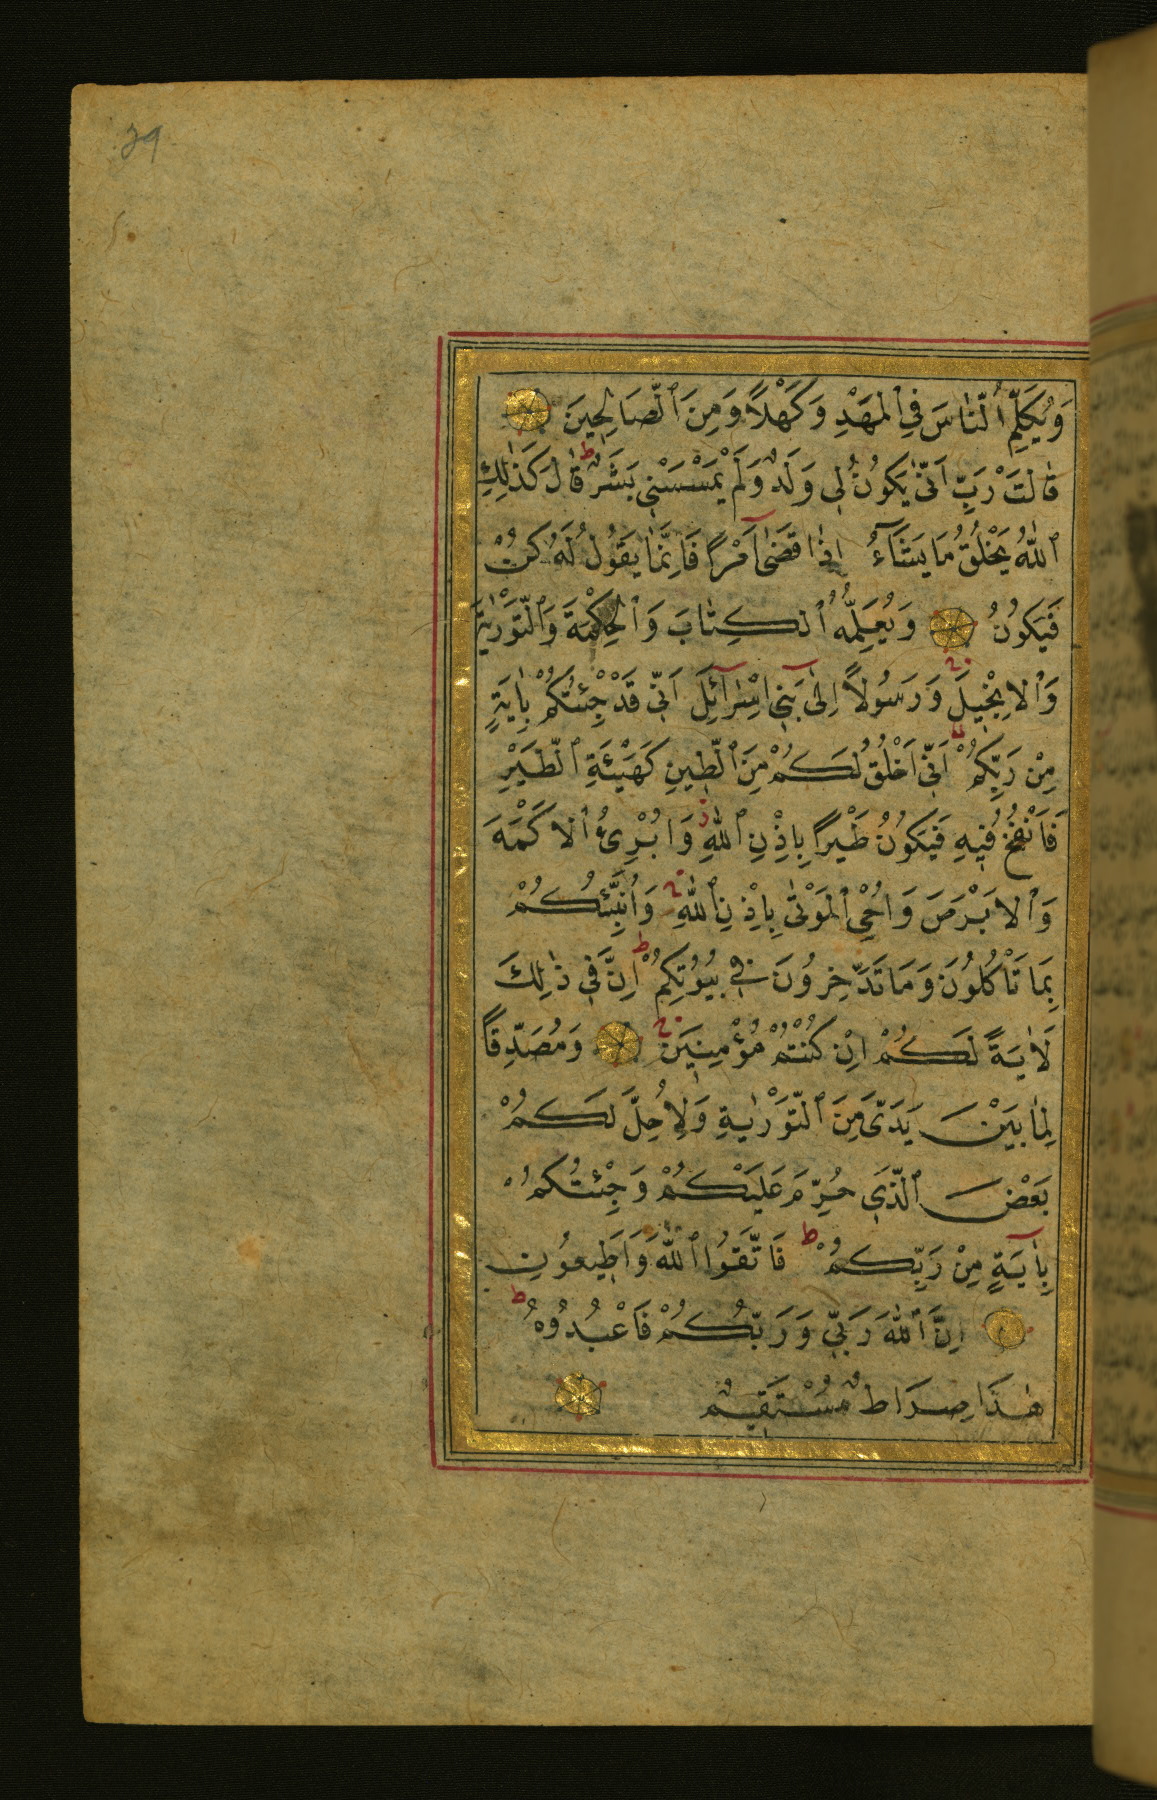 39
وَيُكَلِّمُ ٱلنَّاسَ فِي ٱلْمَهْدِ وَكَهْلًا وَمِنَ ٱلصَّالِحِينَ
قَالَتْ رَبِّ اَنّٰى يَكُونُ لِى وَلَدٌ وَلَمْ يَمْسَسْنِى بَشَرٌ ط قَالَ كَذٰلِكِ
ٱللّٰهُ يَخْلُقُ مَا يَشَآءُ اِذَا قَضٰى اَمْرًا فَاِنَّمَا يَقُولُ لَهُ كُنْ
فَيَكُونُ وَيُعَلِّمُهُ ٱلْكِتَابَ وَٱلْحِكْمَةَ وَٱلتَّوْرٰيةَ
وَٱلْاِنْجِيلَ وَرَسُولًا اِلٰى بَنِى اِسْرَآئِلَ اَنِّى قَدْ جِئْتُكُمْ بِاٰيَةٍ
مِنْ رَبِّكُمْ لا اَنِّى اَخْلُقُ لَكُمْ مِنَ ٱلطِّينِ كَهَيْئَةِ ٱلطَّيْرِ
فَاَنْفُخُ فِيهِ فَيَكُونُ طَيْرًا بِاِذْنِ ٱللّٰهِ وَاُبْرِئُ ٱلْاَكْمَهَ
وَٱلْاَبْرَصَ وَاُحْيِ ٱلْمَوْتٰى بِاِذْنِ ٱللّٰهِ ج وَاُنَبِّئُكُمْ
بِمَا تَاْكُلُونَ وَمَا تَدَّخِرُونَ فِى بُيُوتِكُمْ ط اِنَّ فِى ذٰلِكَ
لَاٰيَةً لَكُمْ اِنْ كُنْتُمْ مُؤْمِنِينَ ج وَمُصَدِّقًا
لِمَا بَيْنَ يَدَىَّ مِنَ ٱلتَّوْرٰيةِ وَلِاُحِلَّ لَكُمْ
بَعْضَ ٱلَّذِى حُرِّمَ عَلَيْكُمْ وَجِئْتُكُمْ
بِاٰيَةٍ مِنْ رَبِّكُمْ ط فَاتَّقُوا ٱللّٰهَ وَاَطِيعُونِ
اِنَّ ٱللّٰهَ رَبِّى وَرَبُّكُمْ فَاعْبُدُوهُ ط
هٰذَا صِرَاطٌ مُسْتَقِيمٌ